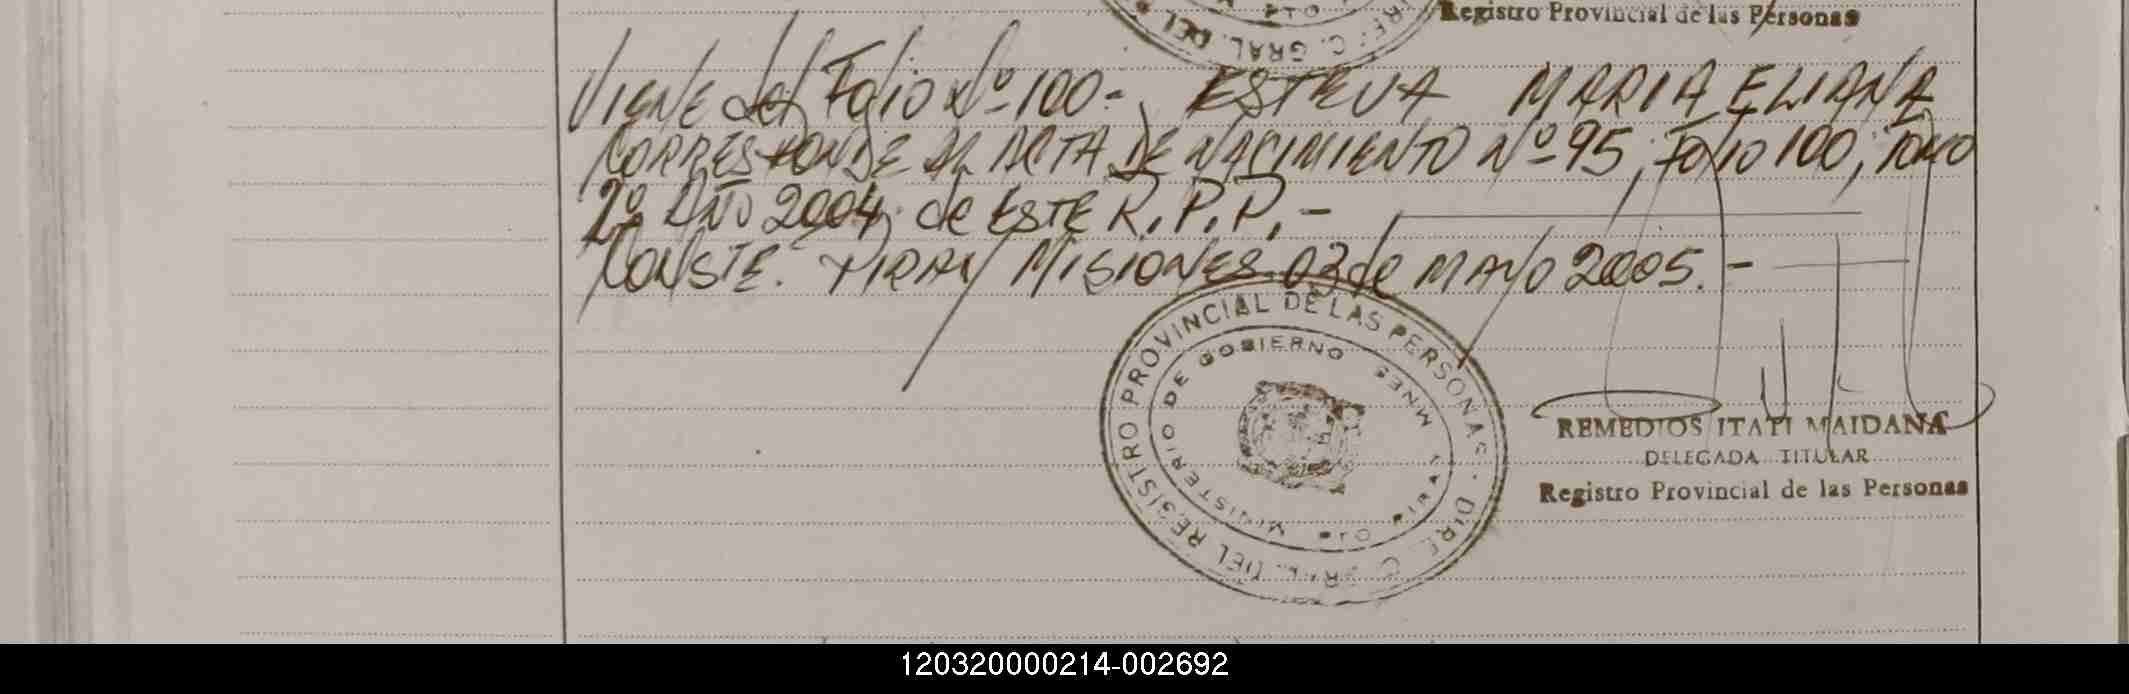 Registro Provincial de las Personas
VIENE del Folio Nº 100-. ESTEVA MARIA ELIANA
CORRESPONDE AL ACTA DE NACIMIENTO Nº 95, Folio 100, TOMO
2º AÑO 2004, de ESTE R.P.P.-
CONSTE. PIRAY MISIONES 03 de MAYO 2005.-
REGISTRO PROVINCIAL DE LAS PERSONAS
MINISTERIO DE GOBIERNO
REMEDIOS ITATI MAIDANA
DELEGADA TITULAR
Registro Provincial de las Personas
120320000214-002692